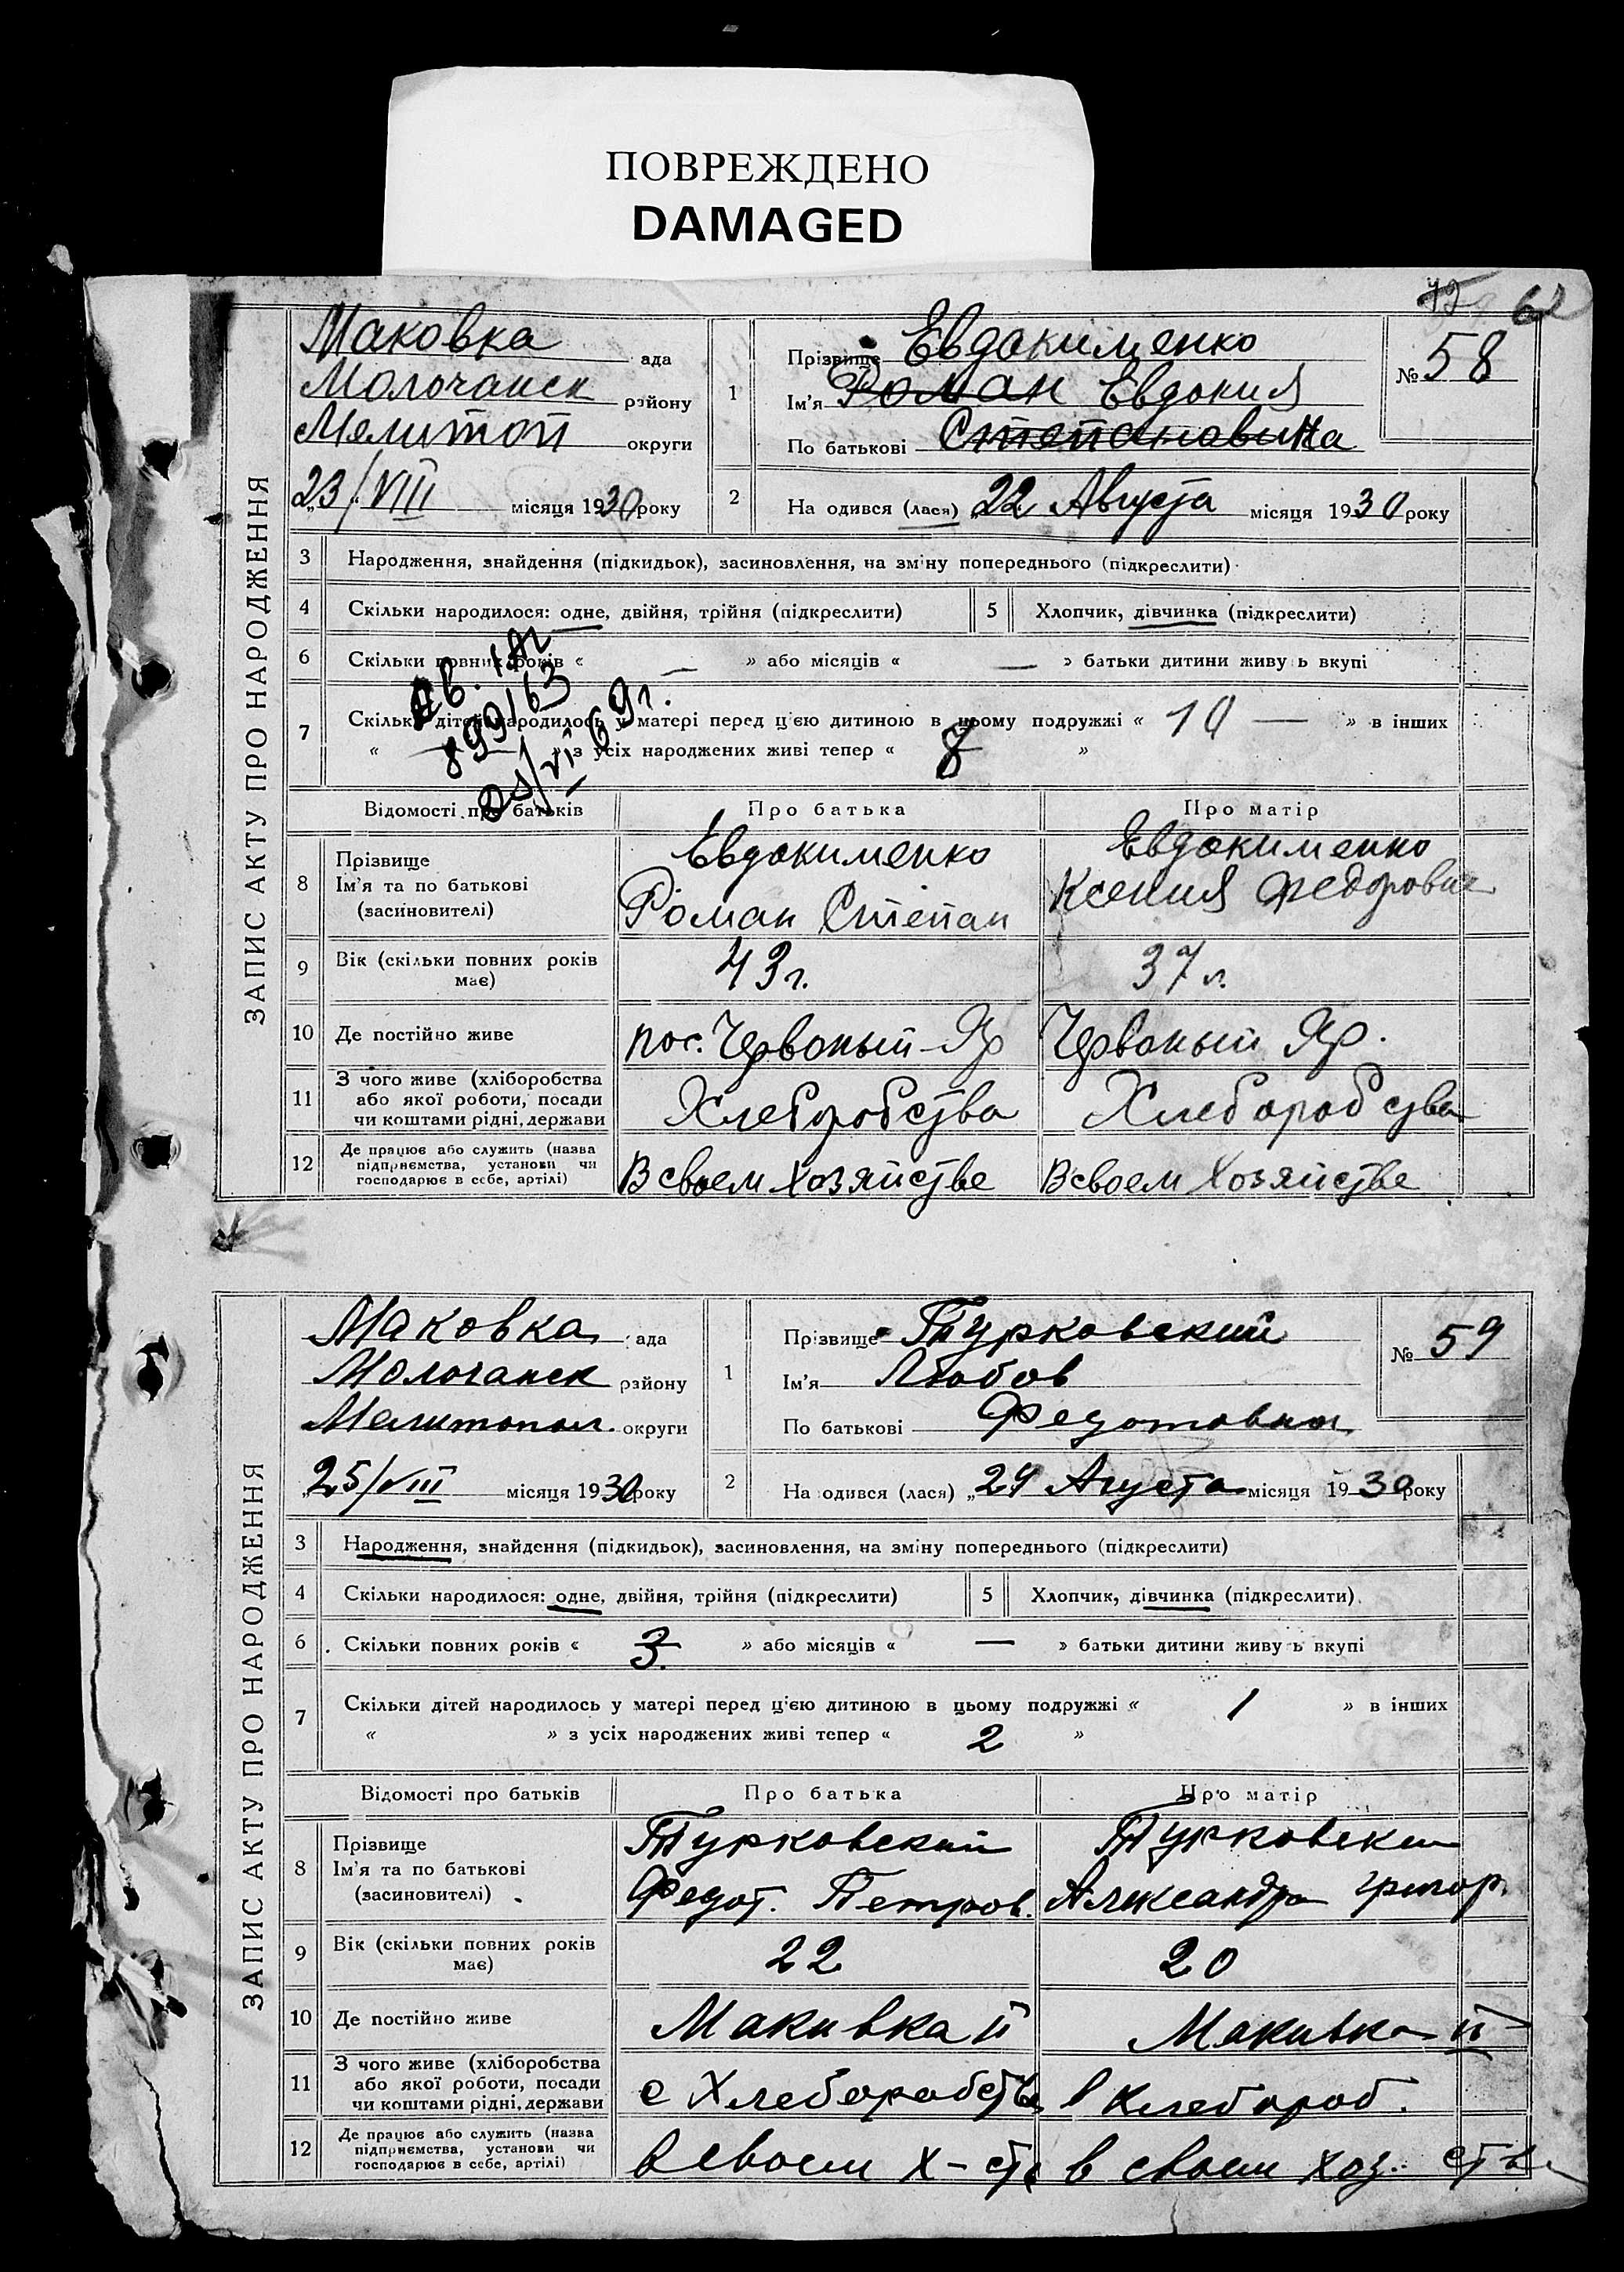 ПОВРЕЖДЕНО
DAMAGED
62
ЗАПИС АКТУ ПРО НАРОДЖЕННЯ
Маковка ада
Молочанск району
Мелитоп округи
23/VIII місяця 1930 року
1
Прізвище Евдокименко
Ім'я Роман Евдокия
По батькові Степановина
№ 58
2
На одився (лася) 22 Августа місяця 1930 року
3 Народження, знайдення (підкидьок), засиновлення, на зміну попереднього (підкреслити)
4 Скільки народилося: одне, двійня, трійня (підкреслити)
5 Хлопчик, дівчинка (підкреслити)
6 Скільки повних років « — » або місяців « — » батьки дитини живу ь вкупі
7 Скільки дітей народилось у матері перед ц'єю дитиною в цьому подружжі « 10 — » в інших
« » з усіх народжених живі тепер « 8 »
Відомості про батьків Про батька Про матір
8 Прізвище
Ім'я та по батькові
(засиновителі)
Евдокименко
Роман Степан
Евдокименко
Ксения Федоровне
9 Вік (скільки повних років
має)
43 г.
37 л.
10 Де постійно живе
пос. Червоный-Яр
Червоный Яр.
11 З чого живе (хліборобства
або якої роботи, посади
чи коштами рідні, держави
Хлеборобства
Хлеборобства
12 Де працює або служить (назва
підприємства, установи чи
господарює в себе, артілі)
В своем хозяйстве
В своем хозяйстве
ЗАПИС АКТУ ПРО НАРОДЖЕННЯ
Маковка ада
Молочанск району
Мелитопол. округи
25/VIII місяця 1930 року
1
Прізвище Турковский
Ім'я Любов
По батькові Федотовна
№ 59
2
На одився (лася) „24 Агуста місяця 1930 року
3 Народження, знайдення (підкидьок), засиновлення, на зміну попереднього (підкреслити)
4 Скільки народилося: одне, двійня, трійня (підкреслити)
5 Хлопчик, дівчинка (підкреслити)
6 Скільки повних років « 3 » або місяців « — » батьки дитини живу ь вкупі
7 Скільки дітей народилось у матері перед ц'єю дитиною в цьому подружжі « 1 » в інших
« » з усіх народжених живі тепер « 2 »
Відомості про батьків Про батька Про матір
8 Прізвище
Ім'я та по батькові
(засиновителі)
Турковский
Федот. Петров.
Турковски
Александра Григор.
9 Вік (скільки повних років
має)
22
20
10 Де постійно живе
Макивка II
Макивка II
11 З чого живе (хліборобства
або якої роботи, посади
чи коштами рідні, держави
с Хлеборобства
в Хлебороб.
12 Де працює або служить (назва
підприємства, установи чи
господарює в себе, артілі)
в своем х-ств
в своем хоз. ств